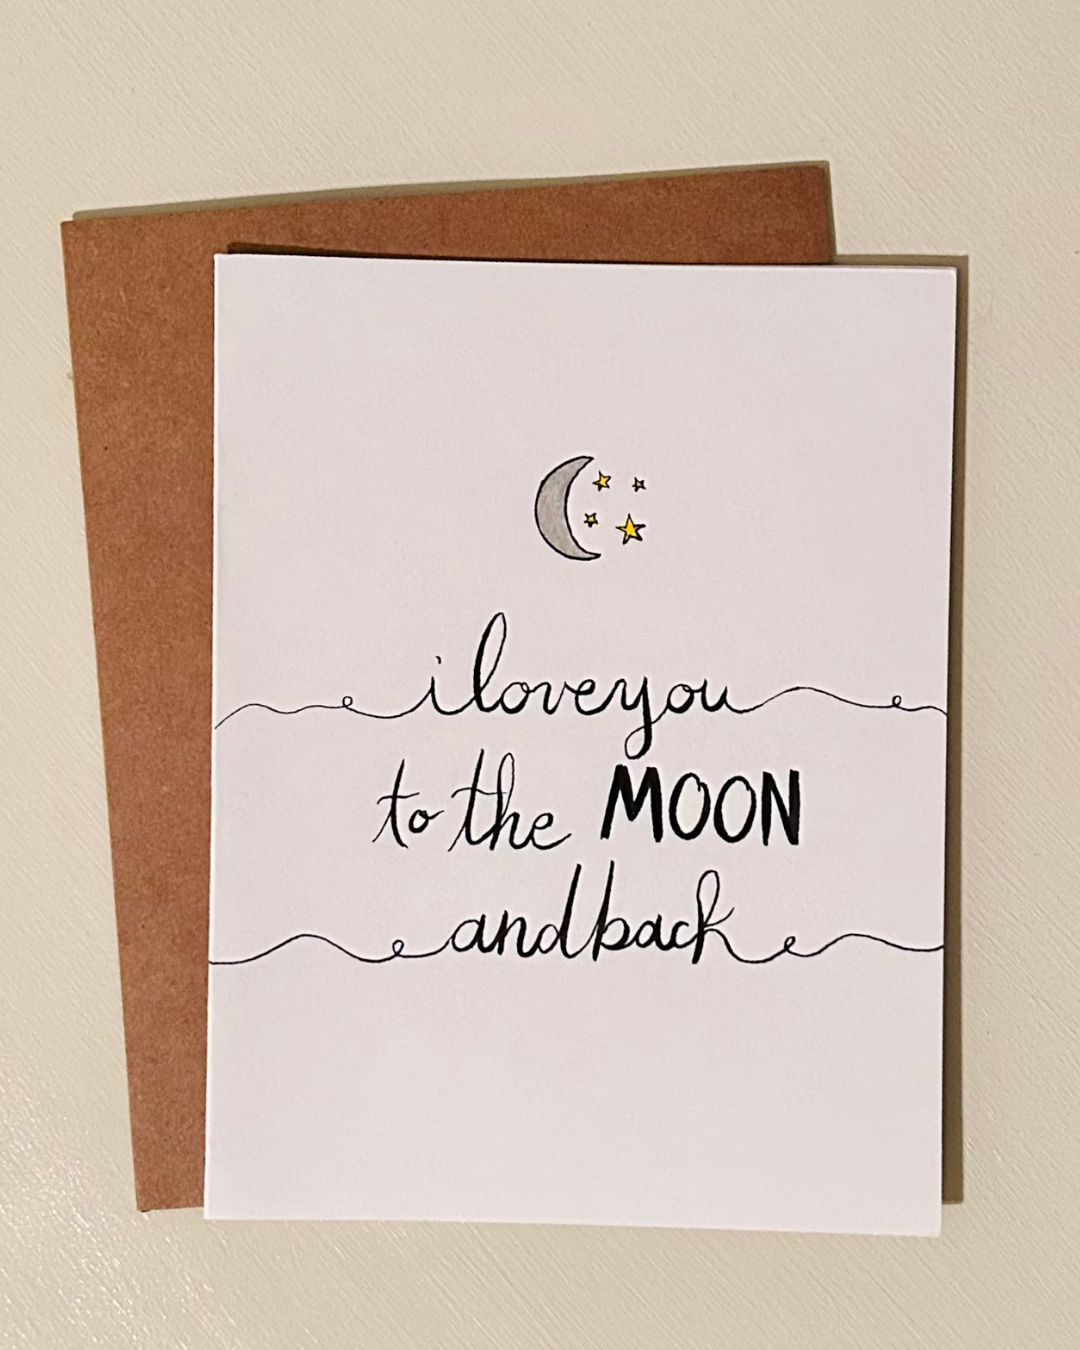 i love you
to the MOON
and back